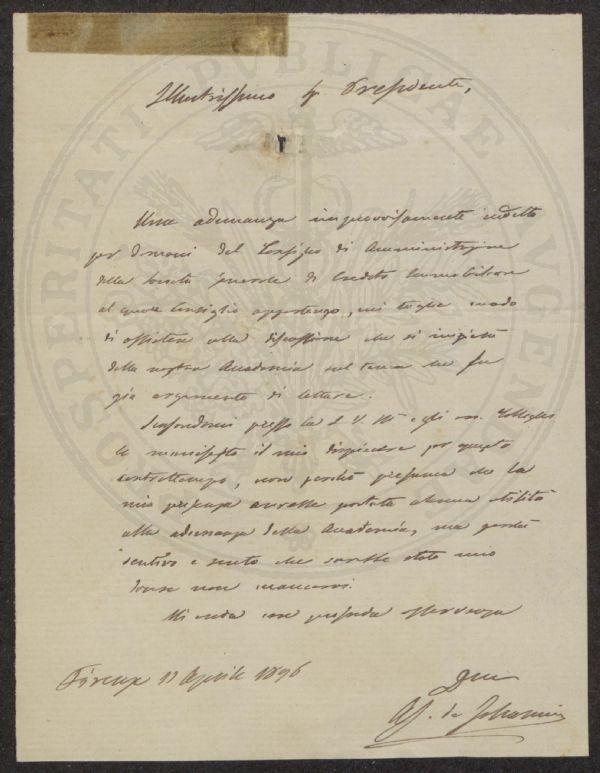 Illustrissimo Sig. Presidente,
Una adunanza improvvisamente indetta
per domani del Consiglio di Amministrazione
della Società Generale di Credito Immobiliare
al quale Consiglio appartengo, mi toglie modo
di assistere alla discussione che si inizierà
della nostra Accademia sul tema che fu
già argomento di letture.
Scusandomi presso la S. V. Ill. e gli on. Colleghi
le manifesto il mio dispiacere per questo
contrattempo, non perchè presuma che la
mia presenza avrebbe portata alcuna utilità
alla adunanza della Accademia, ma perchè
sentivo e sento che sarebbe stato mio
dovere non mancarvi.
Mi creda con profonda osservanza
Firenze 11 Aprile 1896
De Johannis
PROSPERITATI PUBLICAE AUGENDAE